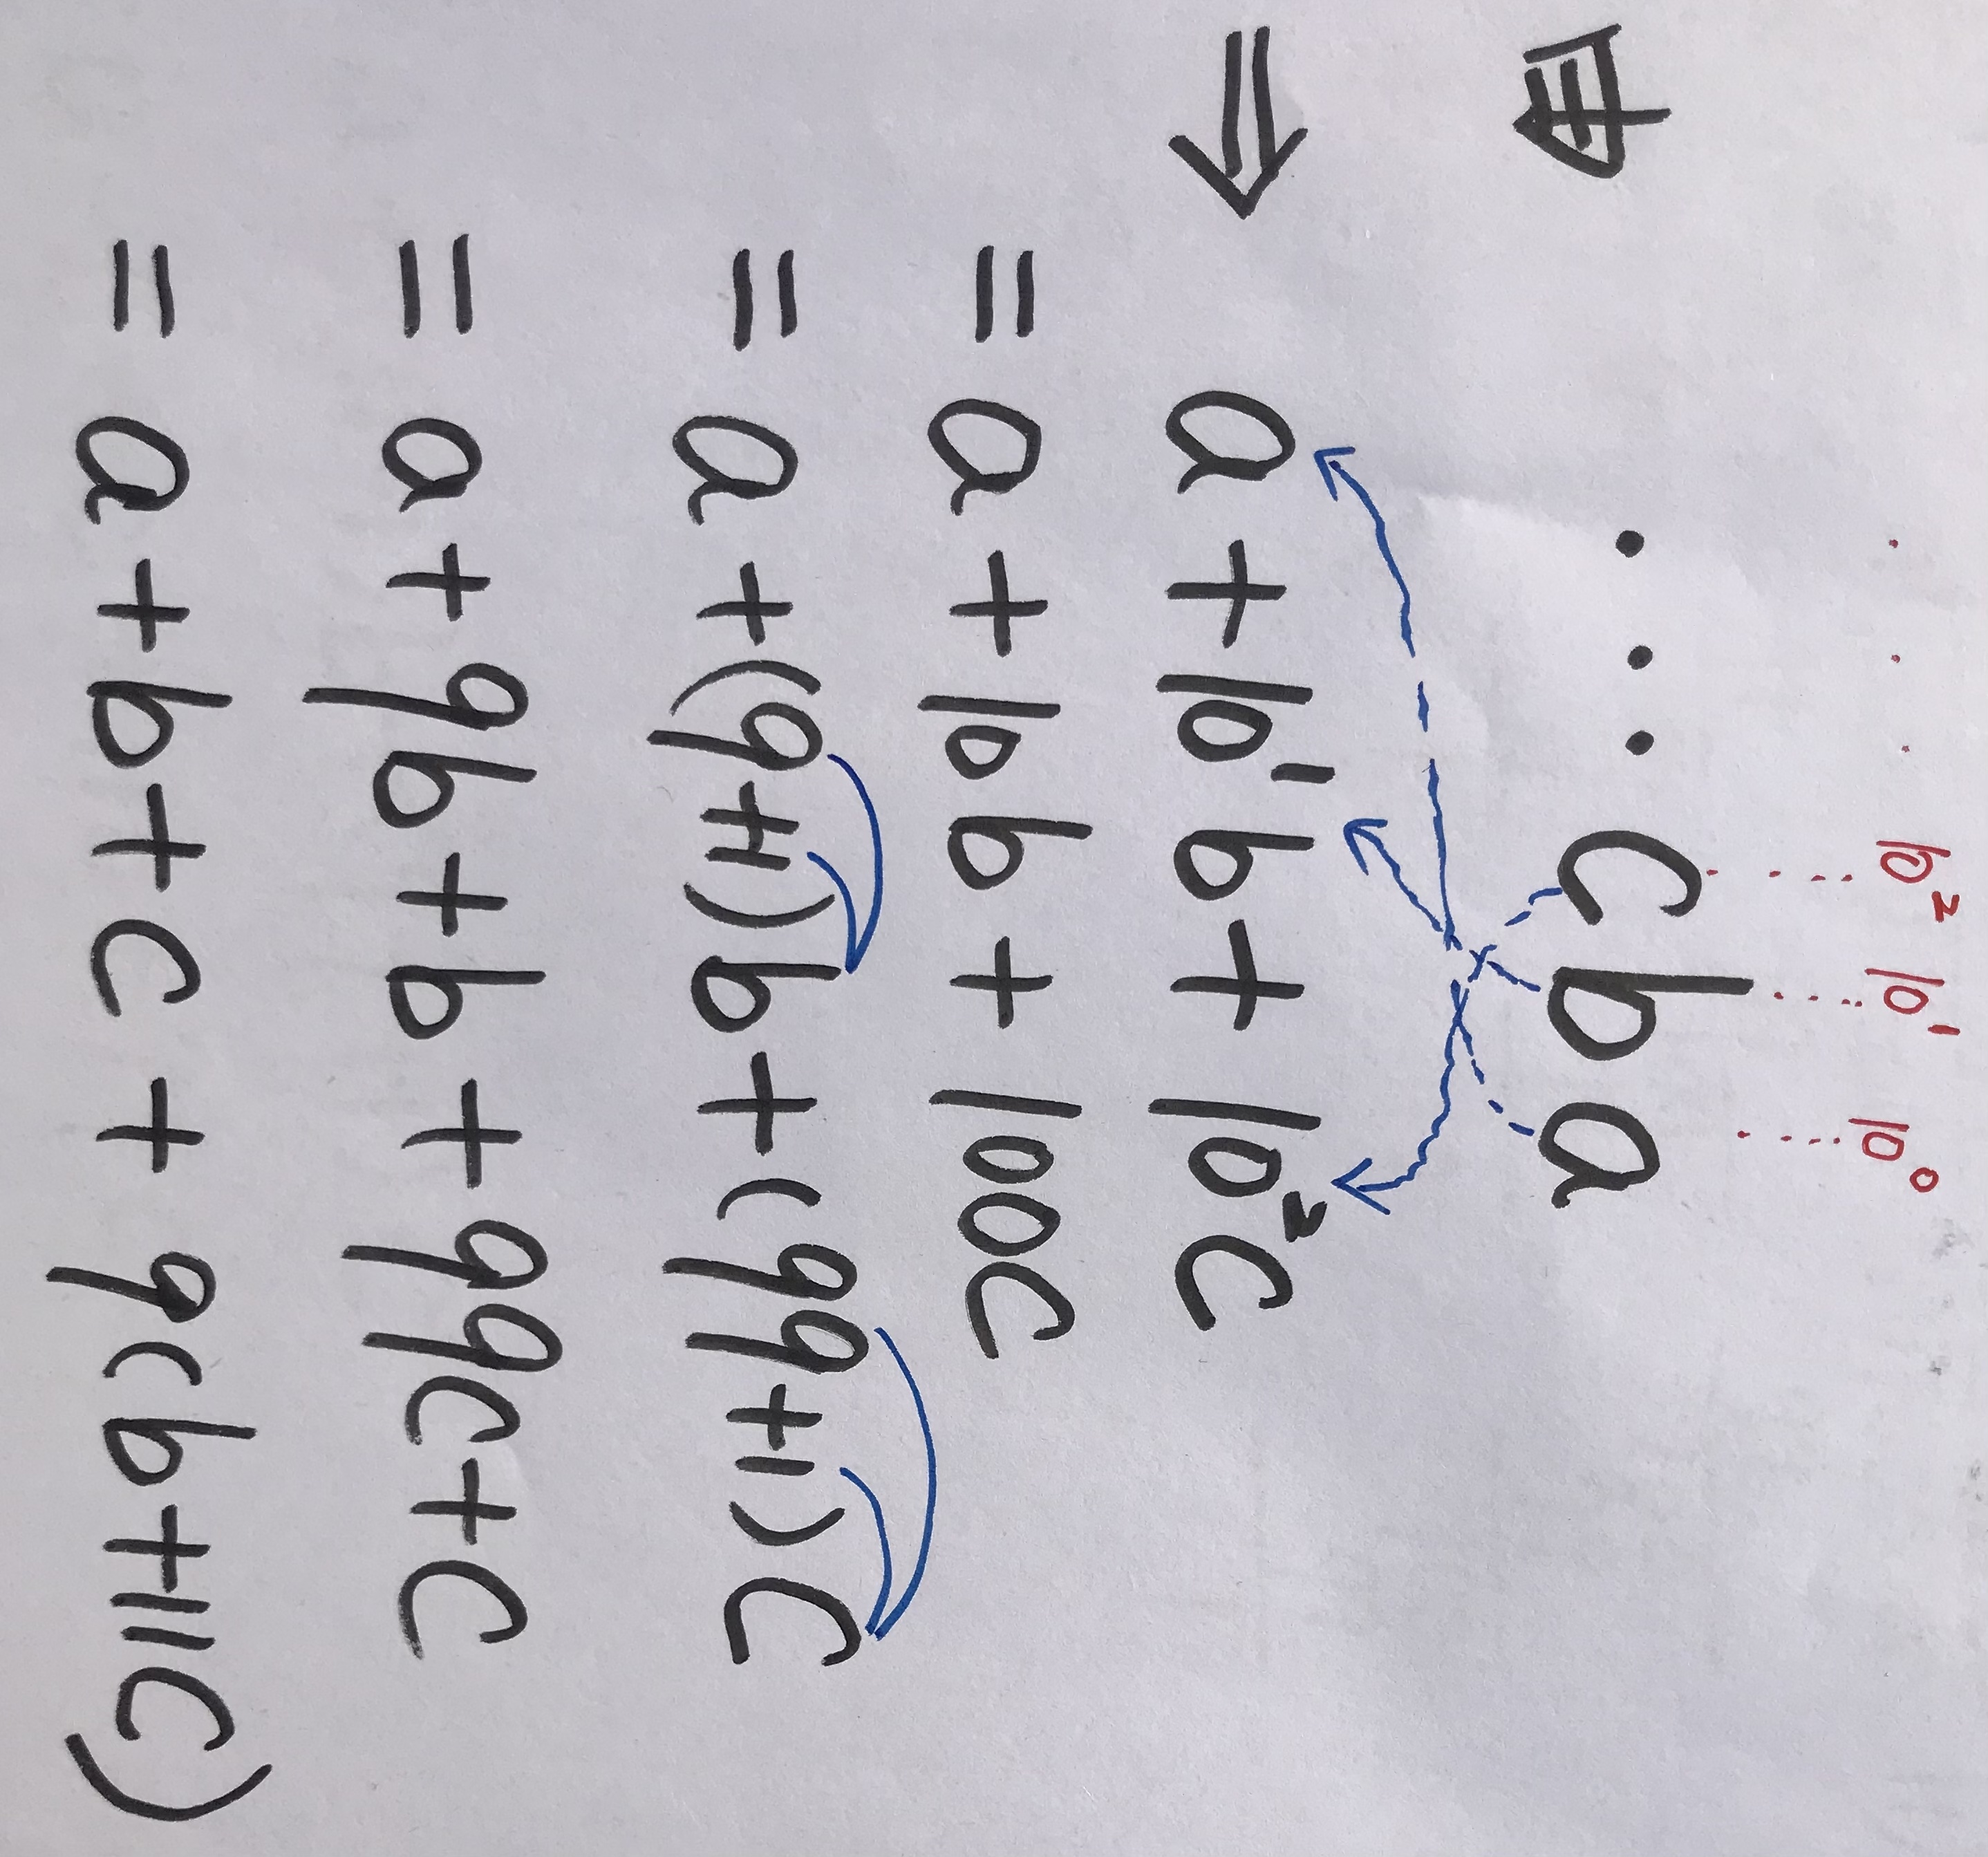 ... 10² 10¹ 10⁰
由 ...cba
⇒ a+10¹b+10²c
=a+10b+100c
=a+(9+1)b+(99+1)c
=a+9b+b+99c+c
=a+b+c+9(b+11c)